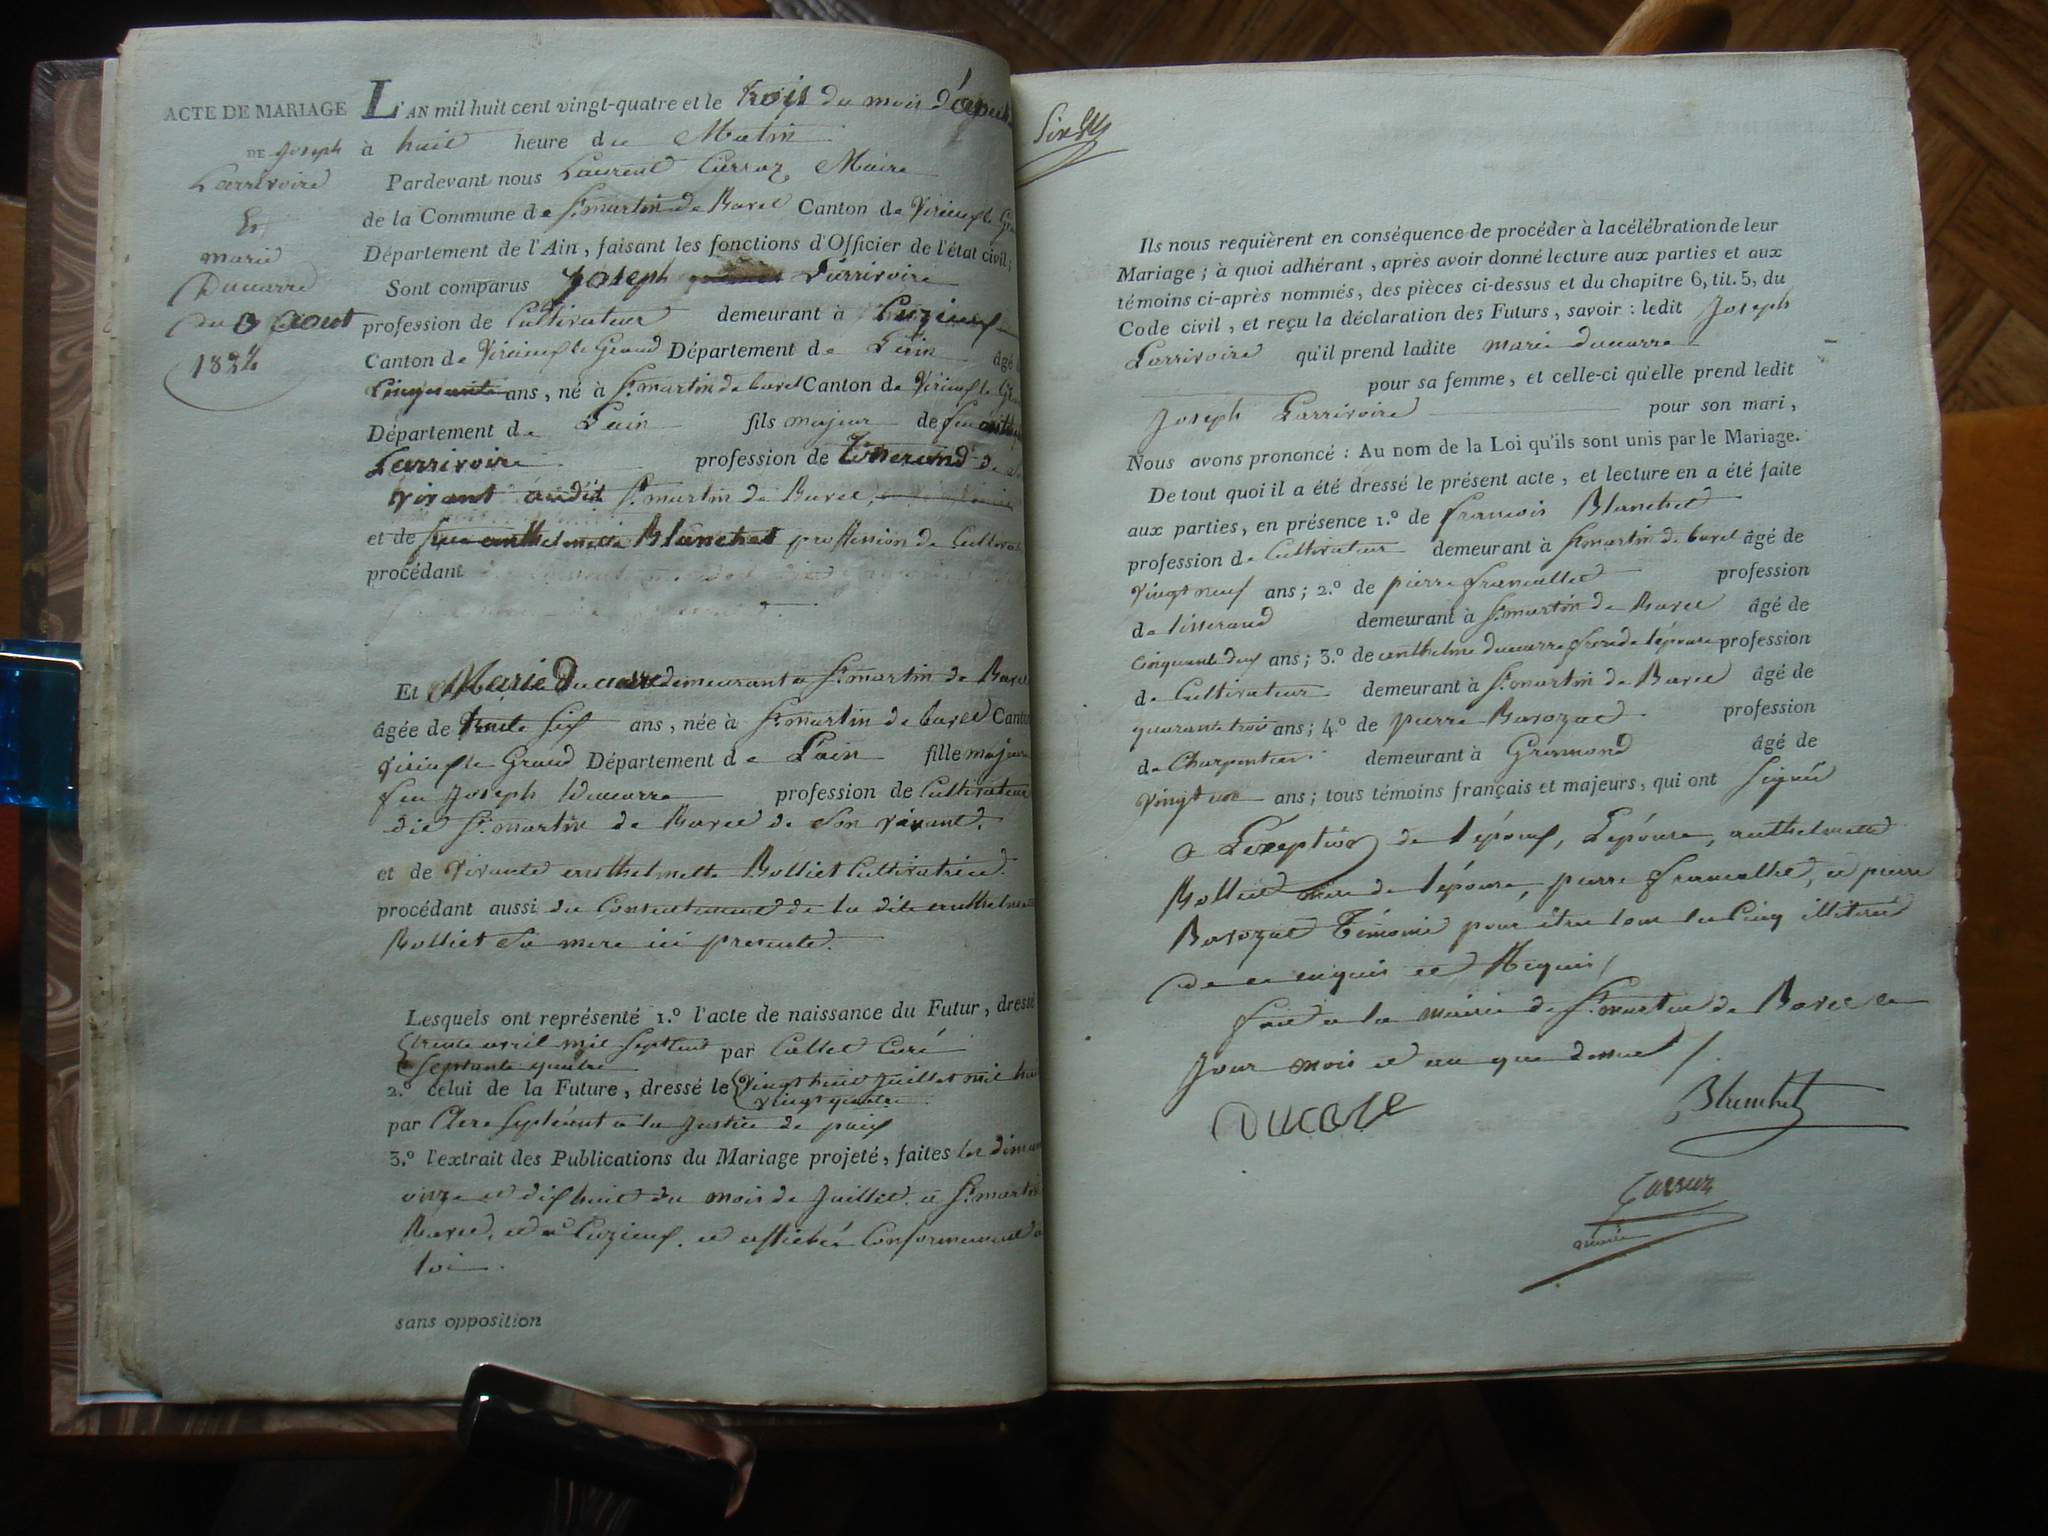 ACTE DE MARIAGE
DE Joseph
Larrivoire
Et
marie
Ducarre
du 3 aout
1824
L'AN mil huit cent vingt-quatre et le trois du mois d'aout
à huit heure du Matin
Pardevant nous Laurent Carraz Maire
de la Commune de St martin de Bavel Canton de Virieux le
Département de l'Ain, faisant les fonctions d'Officier de l'état civil;
Sont comparus Joseph Larrivoire
profession de Cultivateur demeurant à Cuzieux
Canton de Virieux le Grand Département de L'ain âgé
Cinquante ans, né à St martin de bavel Canton de Virieux le
Département de L'ain fils majeur de feu
Larrivoire profession de tisserand de
vivant audit St martin de Bavel
et de anthelmette Blanchet proffession de
procédant
Et Marie Ducarre demeurant a St martin de Bavel
âgée de trente six ans, née à St martin de bavel Canton
Virieux le Grand Département de L'ain fille majeure
feu Joseph Ducarre profession de Cultivateur
dit St martin de Bavel de son vivant.
et de vivante anthelmette Rolliet Cultivatrice.
procédant aussi du Consentement de la dite anthelmette
Rolliet sa mere ici presente.
Lesquels ont représenté 1.º l'acte de naissance du Futur, dressé
trente avril mil sept cent par Callet Curé
septante quatre
2.º celui de la Future, dressé le vingt huit juillet mil huit
vingt quatre
par Clerc supléant a la justice de paix
3.º l'extrait des Publications du Mariage projeté, faites les dimanches
onze et dix huit du mois de juillet a St martin
Bavel, et a Cuzieux. et affiché Conformement a
loi.
sans opposition
Ils nous requièrent en conséquence de procéder à la célébration de leur
Mariage; à quoi adhérant, après avoir donné lecture aux parties et aux
témoins ci-après nommés, des pièces ci-dessus et du chapitre 6, tit. 5, du
Code civil, et reçu la déclaration des Futurs, savoir: ledit Joseph
Larrivoire qu'il prend ladite marie ducarre
pour sa femme, et celle-ci qu'elle prend ledit
Joseph Larrivoire pour son mari,
Nous avons prononcé: Au nom de la Loi qu'ils sont unis par le Mariage.
De tout quoi il a été dressé le présent acte, et lecture en a été faite
aux parties, en présence 1.º de francois Blanchet
profession de Cultivateur demeurant à St martin de bavel âgé de
vingt neuf ans; 2.º de pierre francallet profession
de tisserand demeurant à St martin de Bavel âgé de
cinquante deux ans; 3.º de anthelme ducarre frere de l'épouse profession
de Cultivateur demeurant à St martin de Bavel âgé de
quarante trois ans; 4.º de pierre Bavozat profession
de Charpentier demeurant à Gramond âgé de
vingt un ans; tous témoins français et majeurs, qui ont signé
a L'exeption de l'époux, L'épouse, anthelmette
Rolliet mere de l'épouse, pierre francallet, et pierre
Bavozat Témoins pour etre tous les Cinq illiterés
de ce enquis et Requis,
fait a la mairie de St martin de Bavel les
jour mois et an que dessus
Ducare
Blanchet
Carraz
maire